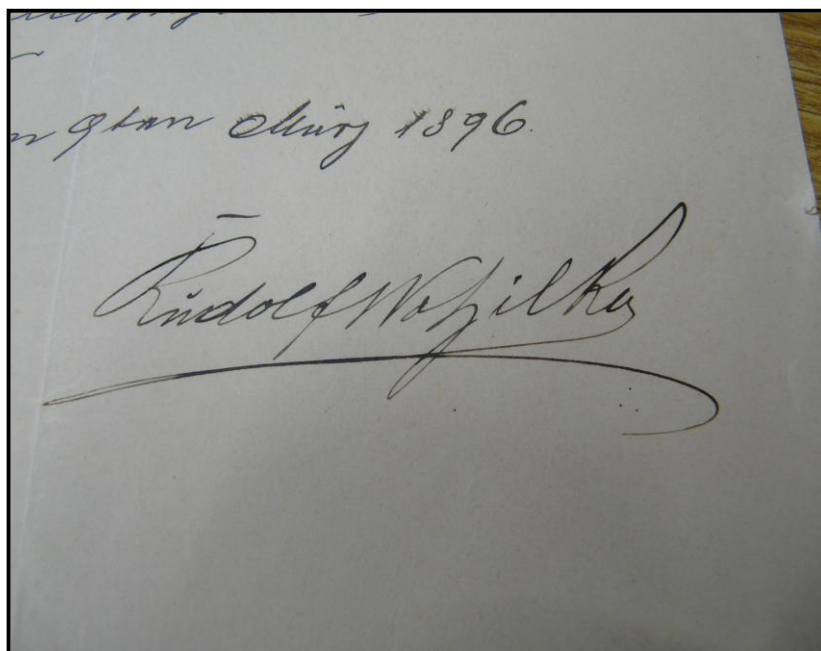 9ten März 1896.
Rudolf Wotzilka